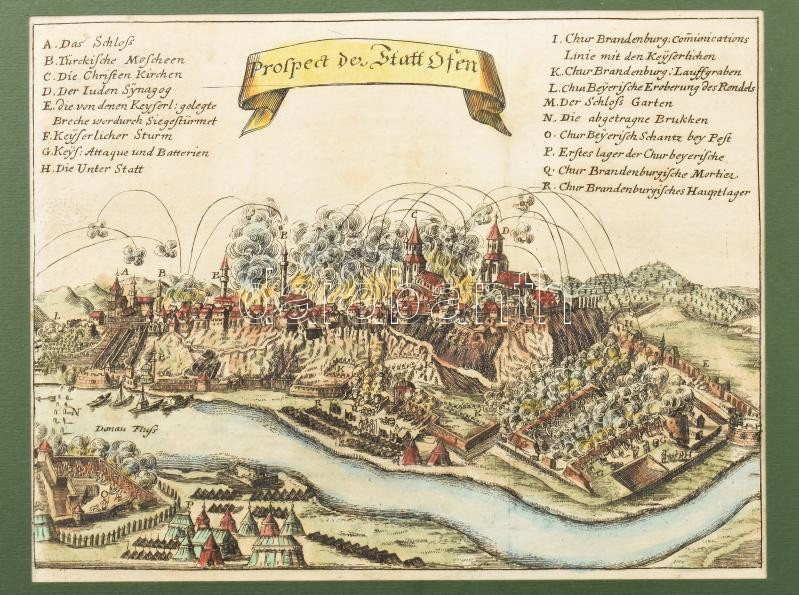 Prospect der Statt Ofen
A. Das Schloss
B. Türckische Moscheen
C. Die Christen Kirchen
D. Der Iuden Sÿnagog
E. die von denen Keyserl: gelegte
Breche wordurch Siegestürmet
F. Keÿserlicher Sturm
G. Keÿs: Attaque und Batterien
H. Die Unter Statt
I. Chur Brandenburg: Com̃unications
Linie mit den Keÿserlichen
K. Chur Brandenburg: Lauffgraben
L. Chur Beÿerische Eroberung des Rondels
M. Der Schloss Garten
N. Die abgetragne Brukken
O. Chur Beÿerisch Schantz bey Pest
P. Erstes lager der Churbeyerische
Q. Chur Brandenburgische Mortier
R. Chur Brandenburgisches Hauptlager
A
B
E
E
C
D
L
K
E
N
Donau Fluss
O
darabanth